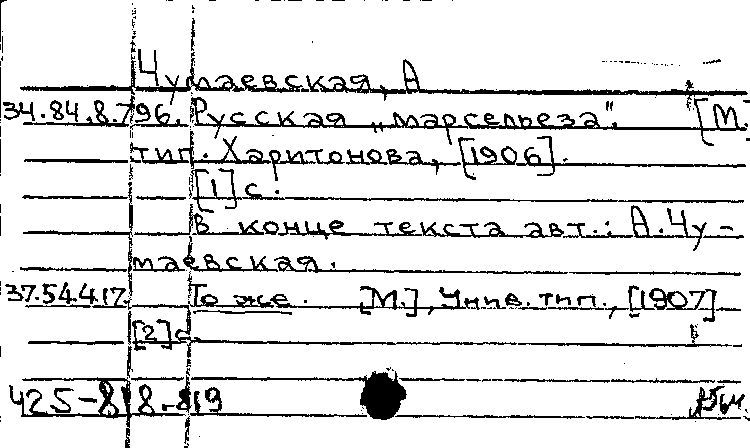 Чумаевская, А
34.84.8.796. Русская „марсельеза". [М.
тип. Харитонова, [1906].
[1] с.
В конце текста авт.: А. Чу-
маевская.
37.54.4.17. То же. [М.], Унив. тип., [1907]
[2] с.
425-818-819